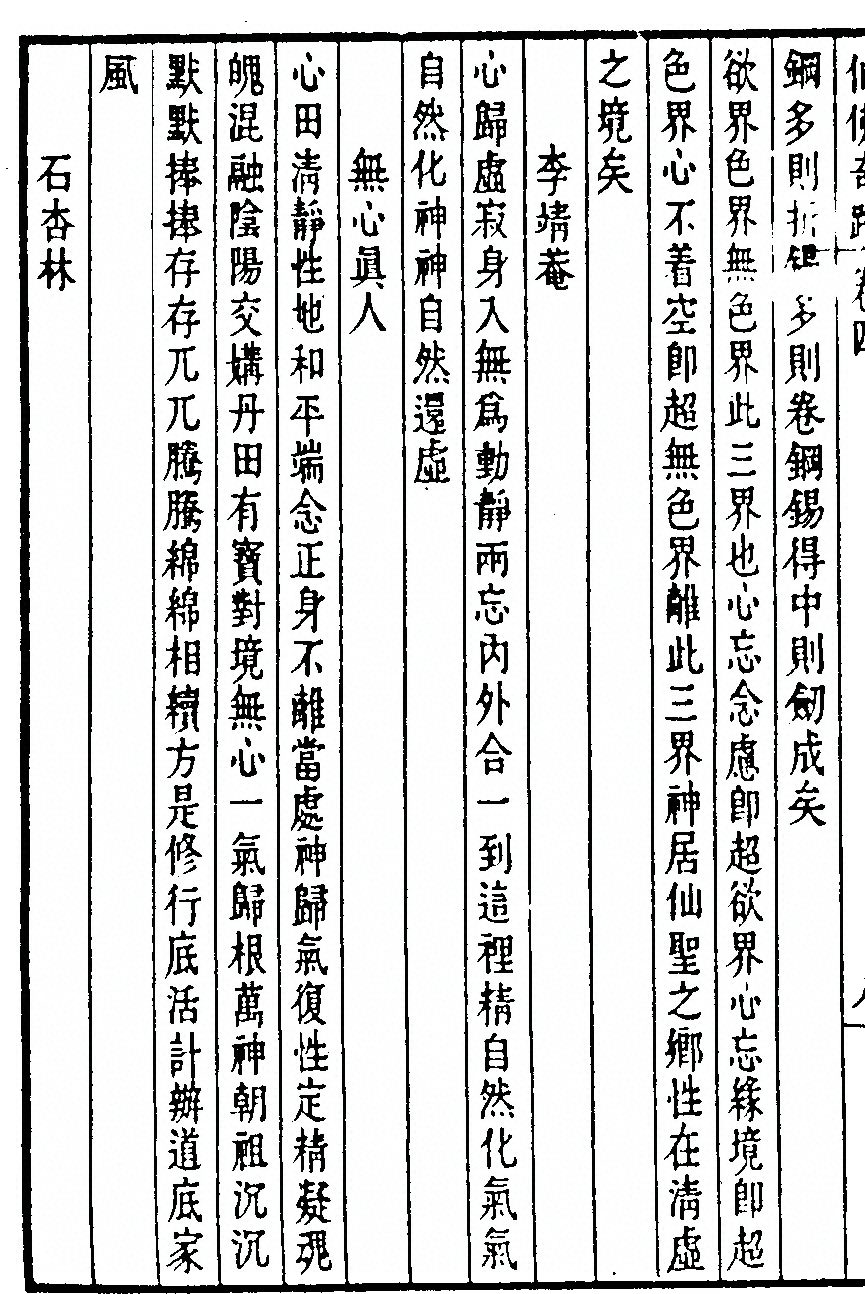 仙佛奇踪 卷四 八
鋼多則折錫多則卷鋼錫得中則劒成矣
欲界色界無色界此三界也心忘念慮卽超欲界心忘緣境卽超
色界心不着空卽超無色界離此三界神居仙聖之鄉性在淸虛
之境矣
李靖菴
心歸虛寂身入無爲動靜兩忘內外合一到這裡精自然化氣氣
自然化神神自然還虛
無心眞人
心田淸靜性地和平端念正身不離當處神歸氣復性定精凝魂
魄混融陰陽交媾丹田有寶對境無心一氣歸根萬神朝祖沉沉
默默捧捧存存兀兀騰騰綿綿相續方是修行底活計辦道底家
風
石杏林